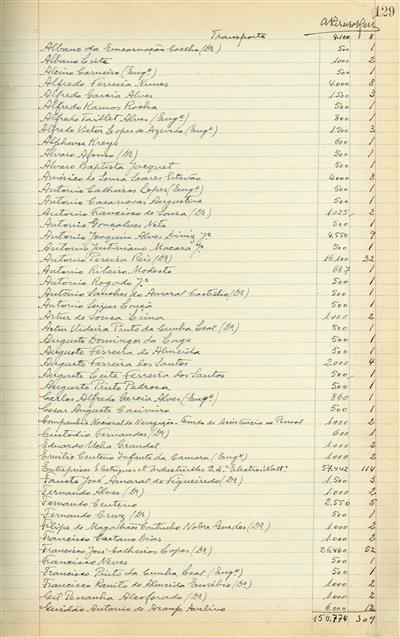 129
Transporte 4.100 8
Albano da Encarnação Coelho (Dr) 500 1
Albano Leite 1.000 2
Alcino Carneiro (Engº) 500 1
Alfredo Ferreira Nunes 4.000 8
Alfredo Garcia Alves 1.500 3
Alfredo Ramos Rocha 500 1
Alfredo Taillet Alves (Engº) 800 1
Alfredo Victor Lopes de Azevedo (Engº) 1.500 3
Alphons Kreye 600 1
Alvaro Afonso (Dr) 500 1
Alvaro Baptista Jacquet 500 1
Américo de Sousa Soares Estevão 4.000 8
Antonio Calheiros Lopes (Engº) 500 1
Antonio Casanovas Augustine 500 1
Antonio Francisco de Sousa (Dr) 1.025 2
Antonio Gonçalves Neto 500 1
Antonio Joaquim Alves Diniz Jº 4.550 9
Antonio Justiniano Macara Jº 500 1
Antonio Pereira Reis (Dr) 16.100 32
Antonio Ribeiro Modesto 687 1
Antonio Rogado Jº 500 1
Antonio Sanches do Amaral Castilho (Dr) 500 1
Antonio Seixas Louçã 500 1
Artur de Sousa Lima 1.000 2
Artur Videira Pinto da Cunha Leal (Dr) 500 1
Augusto Domingos do Lago 500 1
Augusto Ferreira de Almeida 500 1
Augusto Ferreira dos Santos 2.000 4
Augusto Leite Ferreira dos Santos 500 1
Augusto Prieto Pedrosa 500 1
Carlos Alfredo Garcia Alves (Engº) 860 1
Cesar Augusto Casimiro 500 1
Companhia Nacional de Navegação - Fundo de Assistencia ao Pessoal 1.000 2
Custodio Fernandes (Dr) 600 1
Eduardo Melo Grandal 1.000 2
Emilio Centeno Infante da Camara (Engº) 1.000 2
Entreprises Electriques et Industrielles S.A. "Electro-Watt" 57.442 114
Fausto José Amaral de Figueiredo (Dr) 1.500 3
Fernando Alves (Dr) 1.000 2
Fernando Centeno 2.550 5
Fernando Cruz (Dr) 500 1
Filipe de Magalhães Coutinho Nobre Guedes (Dr) 1.000 2
Francisco Caetano Dias 1.000 2
Francisco José Calheiros Lopes (Dr) 26.460 52
Francisco Neves 500 1
Francisco Pinto da Cunha Leal (Engº) 500 1
Francisco Ramito de Almeida Eusébio (Dr) 1.000 2
Gil Pensanha Alcoforado (Dr) 1.000 2
Guidão Antonio de Araujo Avelino 6.000 12
150.774 309